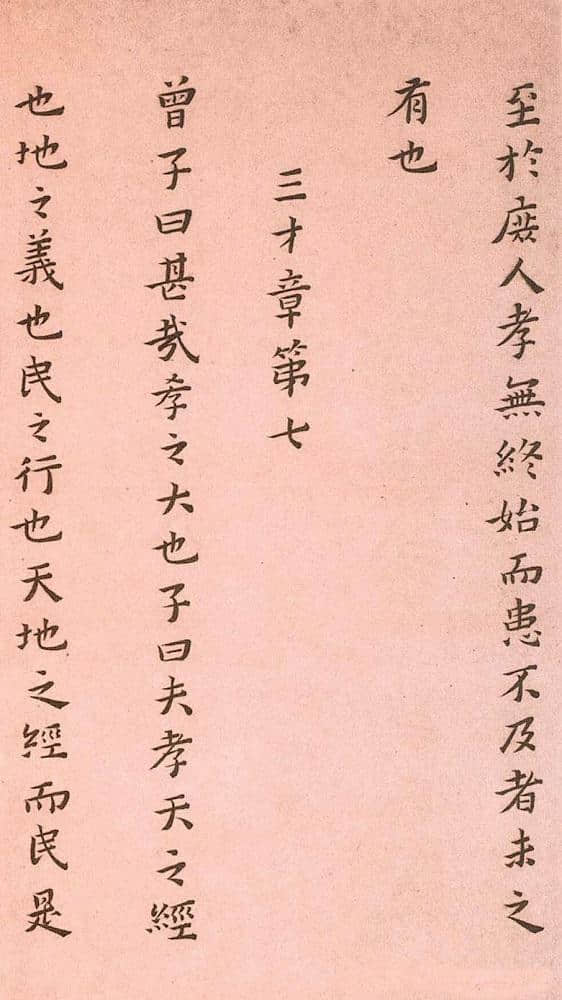 至於庶人孝無終始而患不及者未之
有也
三才章第七
曾子曰甚哉孝之大也子曰夫孝天之經
也地之義也民之行也天地之經而民是